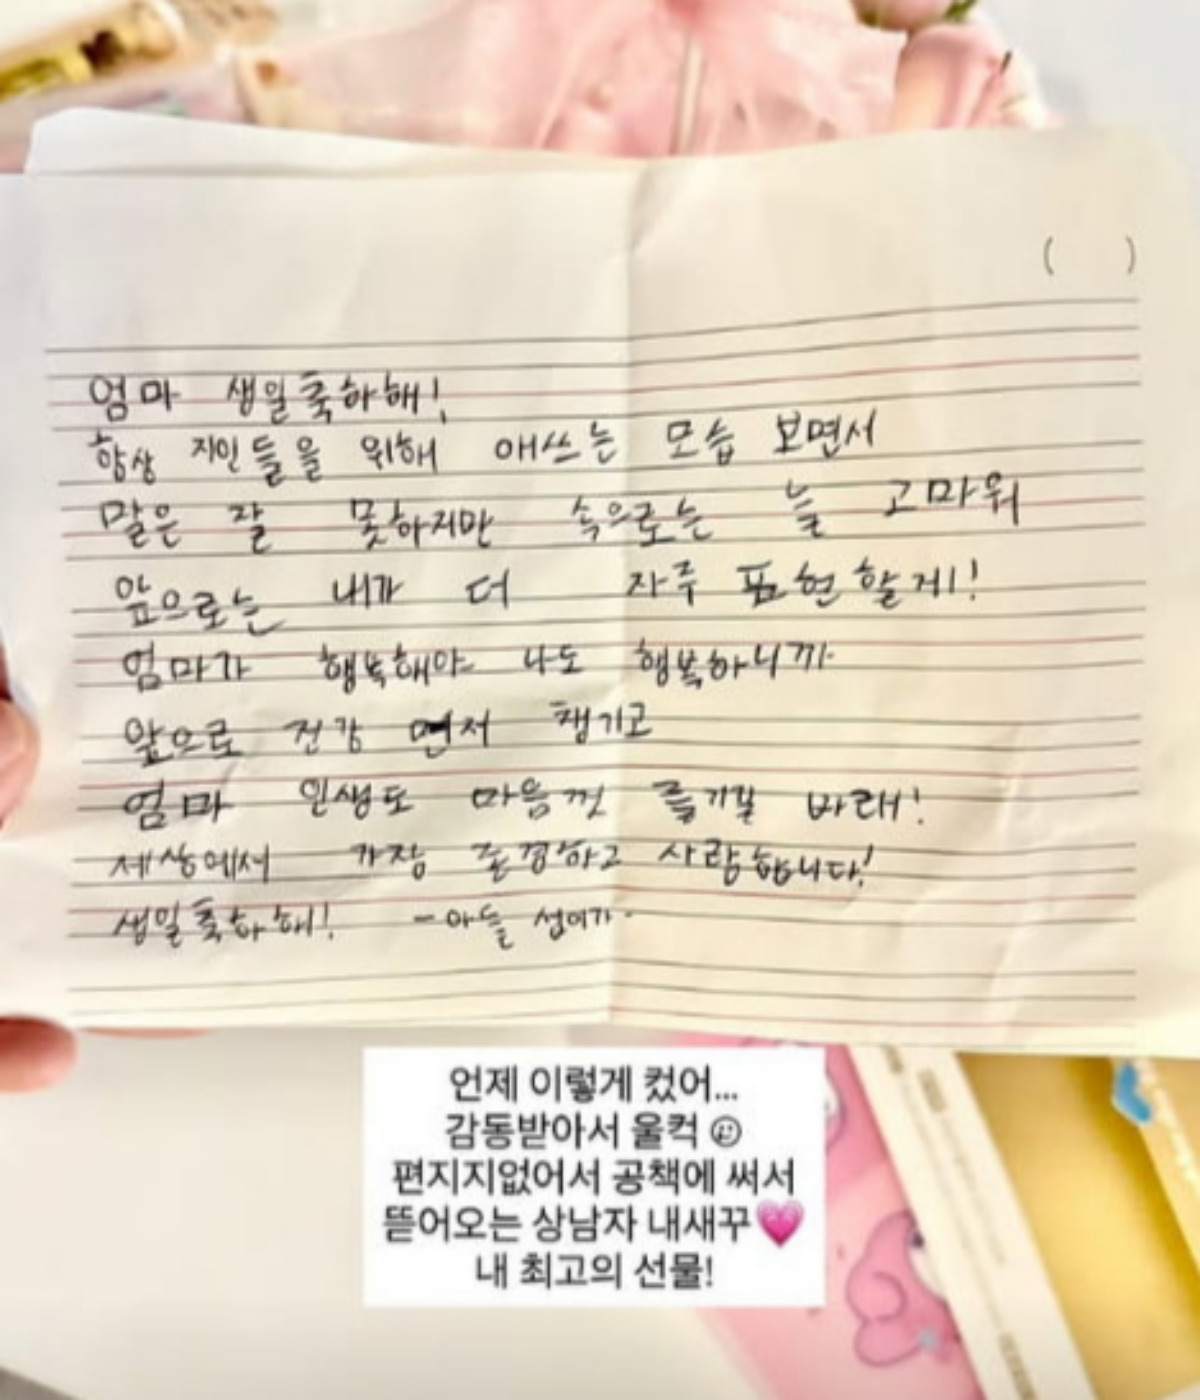 (      )
엄마 생일축하해!
항상 지인들을 위해 애쓰는 모습 보면서
말은 잘 못하지만 속으로는 늘 고마워
앞으로는 내가 더 자주 표현할게!
엄마가 행복해야 나도 행복하니까
앞으로 건강 먼저 챙기고
엄마 인생도 마음껏 즐기길 바래!
세상에서 가장 존경하고 사랑합니다!
생일축하해! -아들 섭이가-
언제 이렇게 컸어...
감동받아서 울컥
편지지없어서 공책에 써서
뜯어오는 상남자 내새꾸💗
내 최고의 선물!